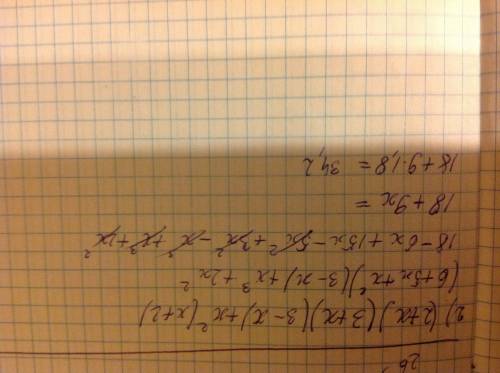 26
2) (2+x)(3+x)(3-x)+x²(x+2)
(6+5x+x²)(3-x)+x³+2x²
18-6x+15x-5x²+3x²-x³+x³+2x²
18+9x =
18+9·1,8= 34,2